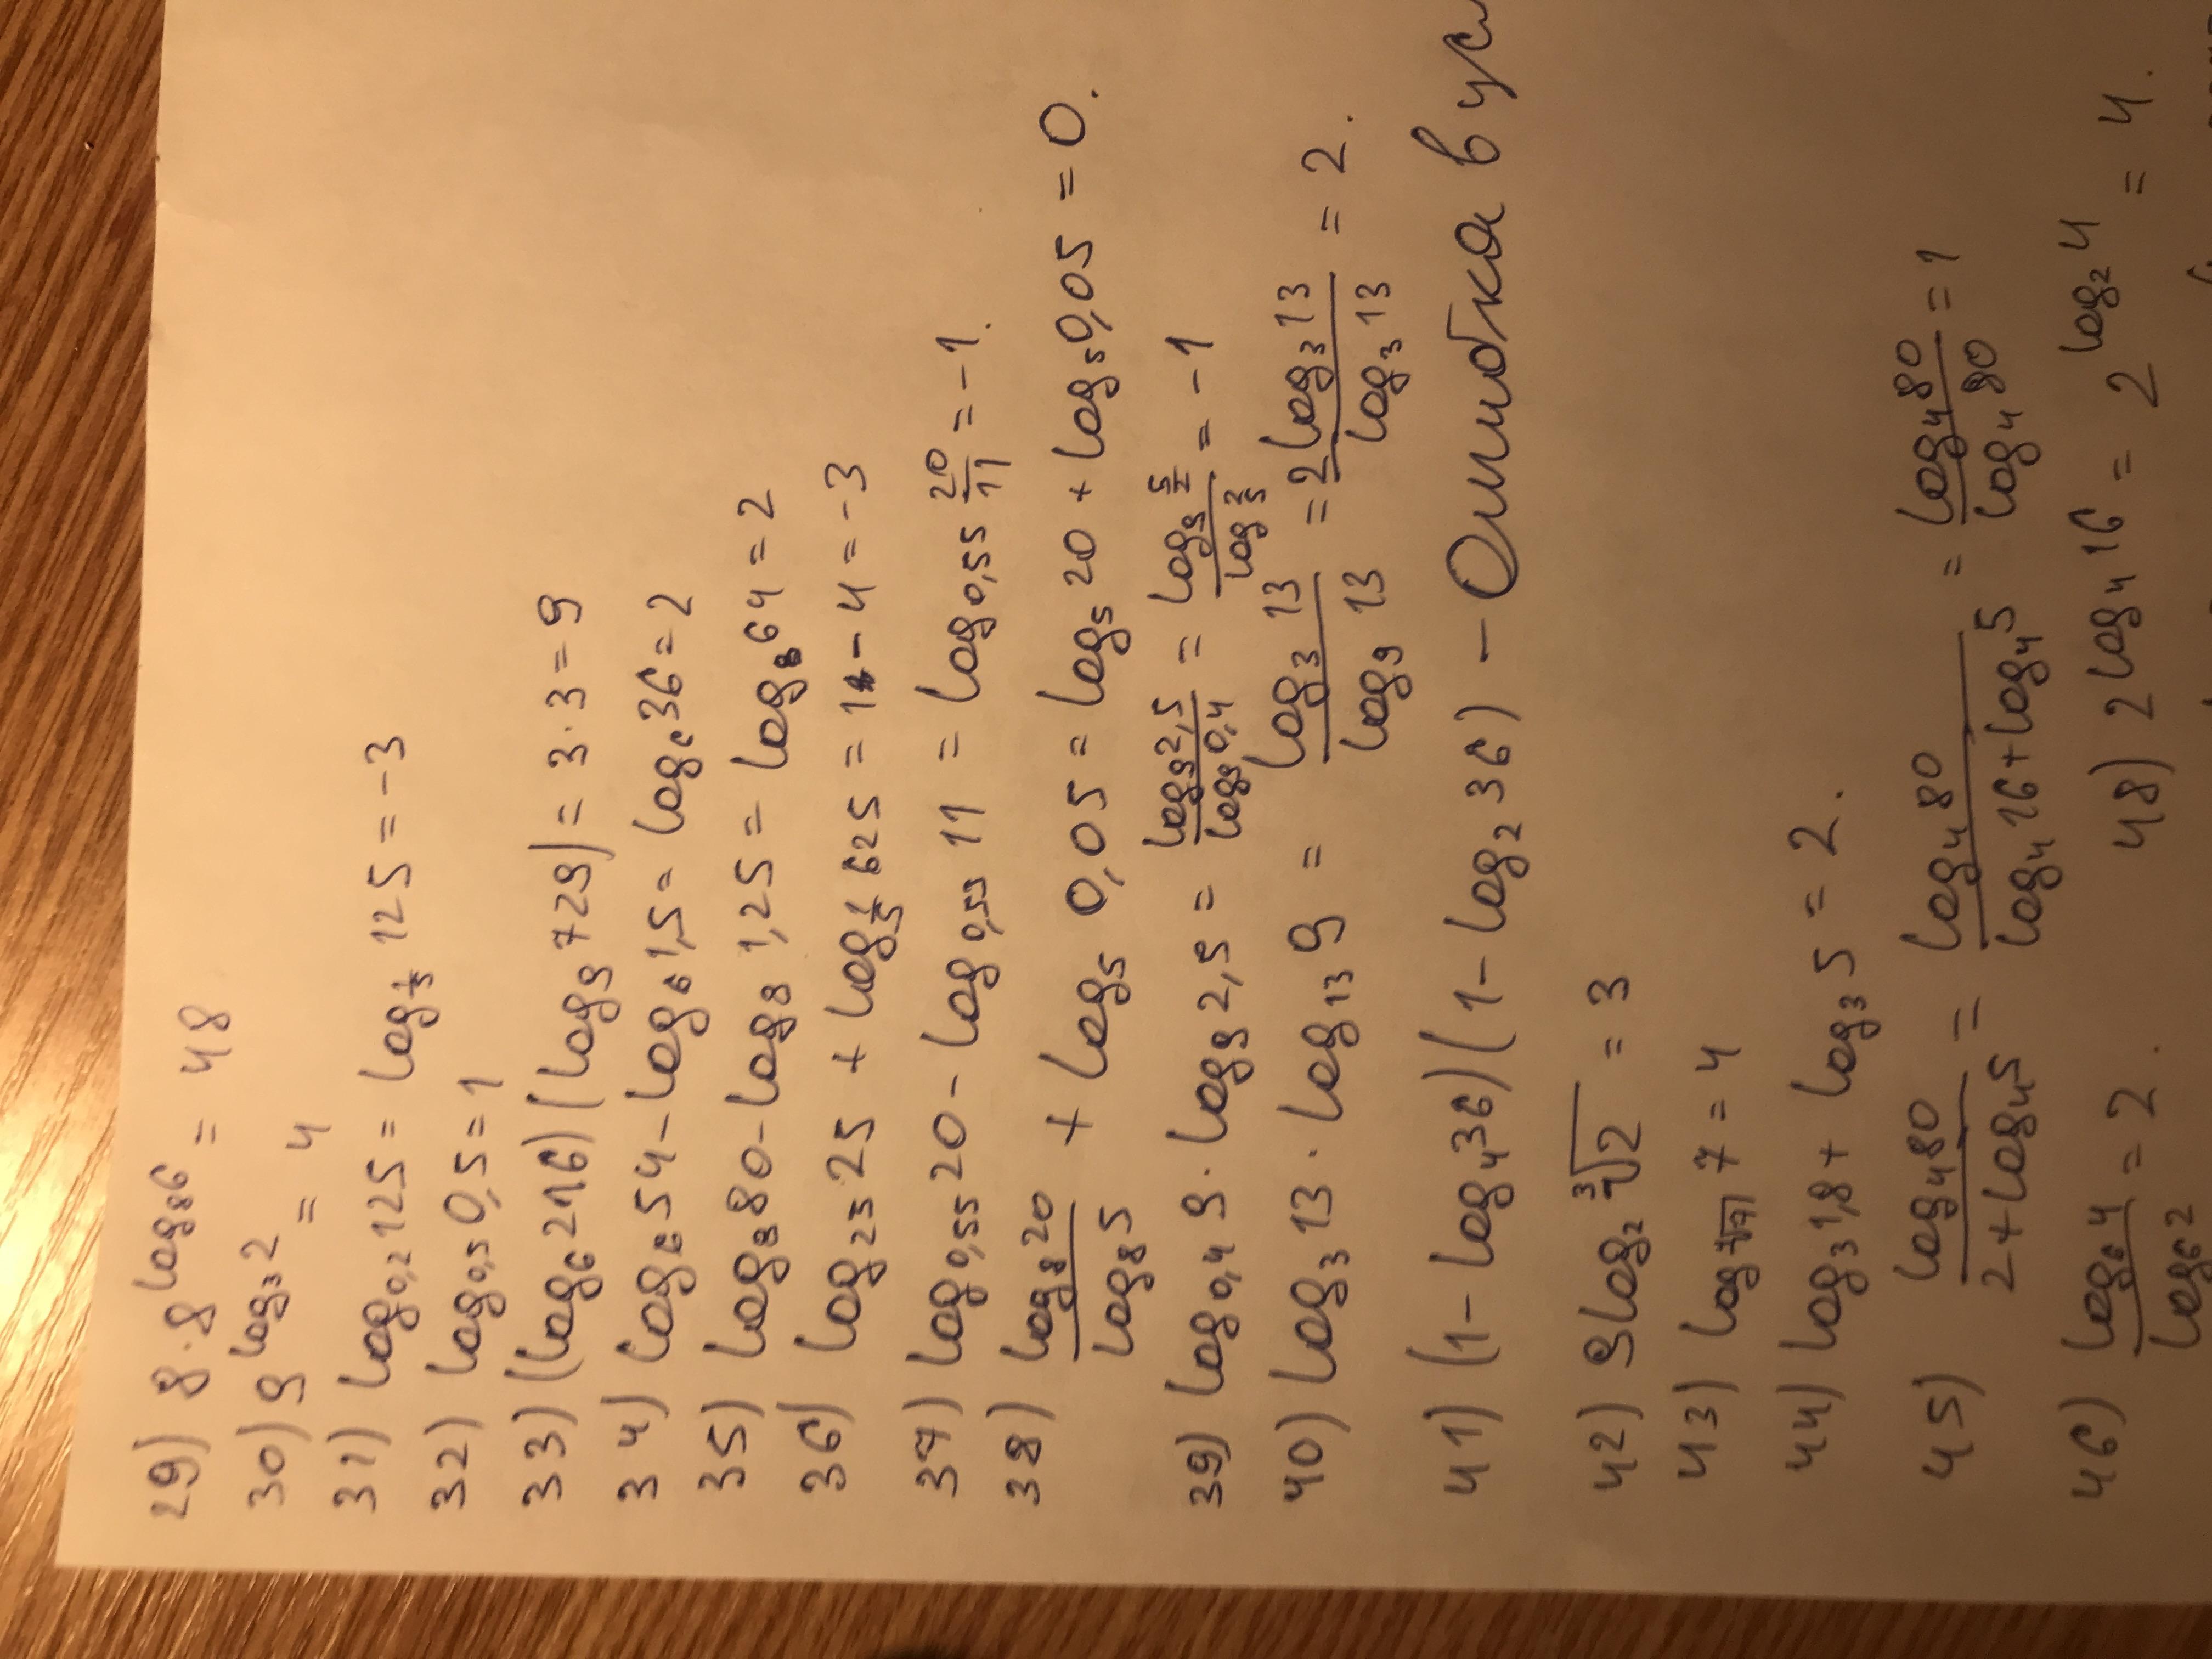 29) 8·8^log₈6 = 48
30) 9^log₃2 = 4
31) log₀,₂125 = log_1/5 125 = -3
32) log₀,₅0,5 = 1
33) (log₆216)(log₉729) = 3·3 = 9
34) log₆54 - log₆1,5 = log₆36 = 2
35) log₈80 - log₈1,25 = log₈64 = 2
36) log₂₅25 + log_1/5 625 = 1 - 4 = -3
37) log₀,₅₅20 - log₀,₅₅11 = log₀,₅₅ 20/11 = -1.
38) log₈20/log₈5 + log₅0,05 = log₅20 + log₅0,05 = 0.
39) log₀,₄9·log₉2,5 = log₉2,5/log₉0,4 = log₉ 5/2 / log₉ 2/5 = -1
40) log₃13·log₁₃9 = log₃13/log₉13 = 2log₃13/log₃13 = 2.
41) (1-log₄36)(1-log₂36) - Ошибка в ус
42) 9log₂∛2 = 3
43) log 7 = 4
44) log₃1,8 + log₃5 = 2.
45) log₄80/2+log₄5 = log₄80/log₄16+log₄5 = log₄80/log₄80 = 1
46) log₆4/log₆2 = 2. 48) 2^log₄16 = 2^log₂4 = 4.